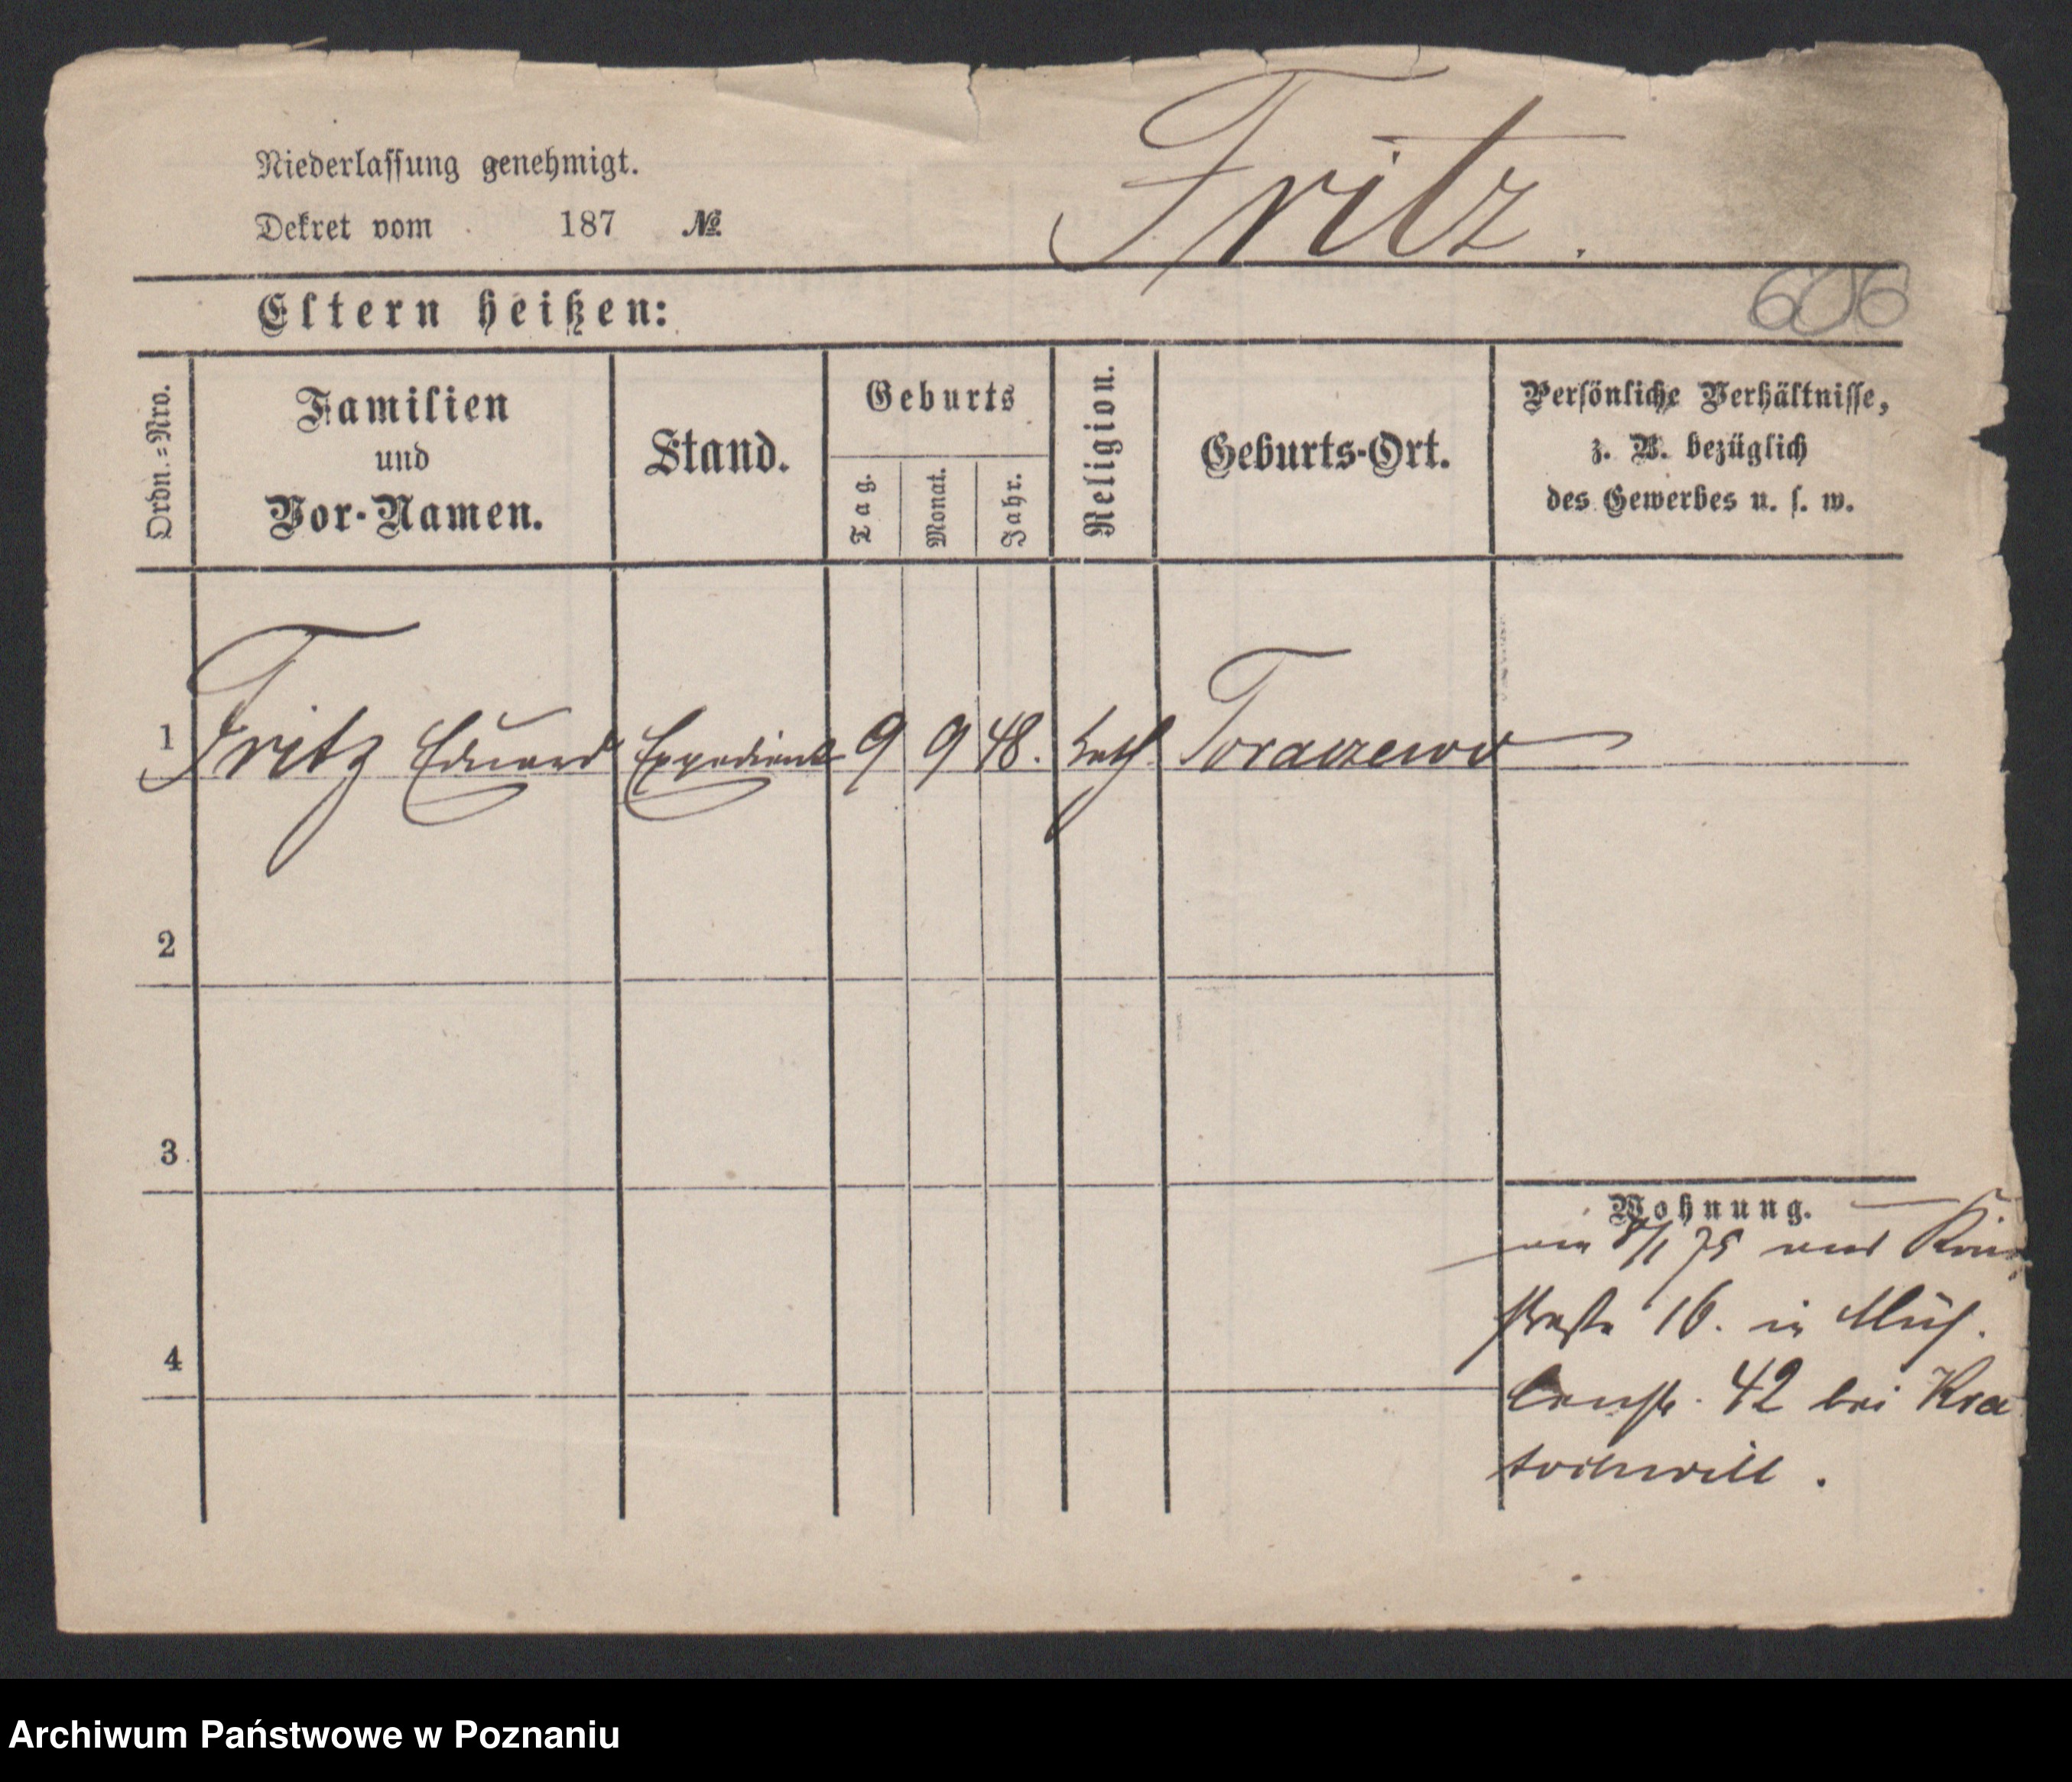 Fritz.
Niederlassung genehmigt.
Dekret vom 187 №
606
Eltern heißen:
Ordn.=Nro.
Familien
und
Vor-Namen.
Stand.
Geburts
Tag.
Monat.
Jahr.
Religion.
Geburts-Ort.
Persönliche Verhältnisse,
z. B. bezüglich
des Gewerbes u. s. w.
1 Fritz Eduard Expedient 9 9 48. kath
2
3
4
Wohnung.
8/1 75
straße 16. in Müh.
lenstr. 42 bei Kra
tochwill.
Archiwum Państwowe w Poznaniu